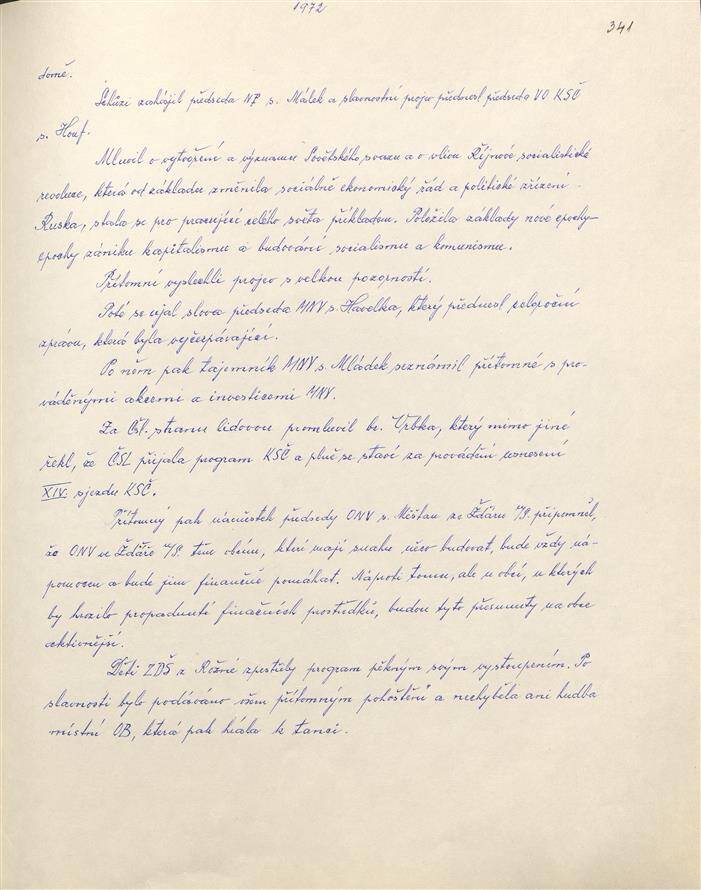 1972
341
domě.
Schůzi zahájil předseda NF s. Málek a slavnostní projev přednesl předseda VO KSČ
s. Houf.
Mluvil o vytvoření a významu Sovětského svazu a o vlivu Říjnové socialistické
revoluce, která od základu změnila sociálně ekonomický řád a politické zřízení
Ruska, stala se pro pracující celého světa příkladem. Položila základy nové epochy-
epochy zániku kapitalismu a budování socialismu a komunismu.
Přítomní vyslechli projev s velkou pozorností.
Poté se ujal slova předseda MNV s. Havelka, který přednesl celoroční
zprávu, která byla vyčerpávající.
Po něm pak tajemník MNV s. Mládek seznámil přítomné s pro-
váděnými akcemi a investicemi MNV.
Za Čsl. stranu lidovou promluvil br. Vrbka, který mimo jiné
řekl, že ČSL přijala program KSČ a plně se staví za provádění usnesení
XIV. sjezdu KSČ.
Přítomný pak náměstek předsedy ONV s. Mištan ze Žďáru n/S. připomněl,
že ONV ve Žďáře n/S. těm obcím, které mají snahu něco budovat, bude vždy ná-
pomocen a bude jim finančně pomáhat. Naproti tomu, ale u obcí, u kterých
by hrozilo propadnutí finančních prostředků, budou tyto přesunuty na obce
aktivnější.
Děti ZDŠ z Rožné zpestřily program pěkným svým vystoupením. Po
slavnosti bylo podáváno všem přítomným pohoštění a nechyběla ani hudba
místní OB, která pak hrála k tanci.